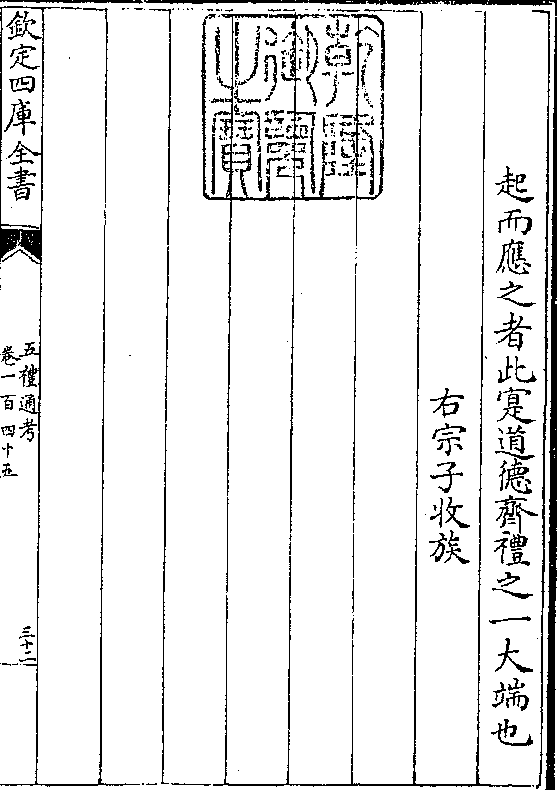 起而應之者此寔道德齊禮之一大端也
右宗子收族
乾隆御覽之寶
欽定四庫全書
五禮通考
卷一百四十五
三十二